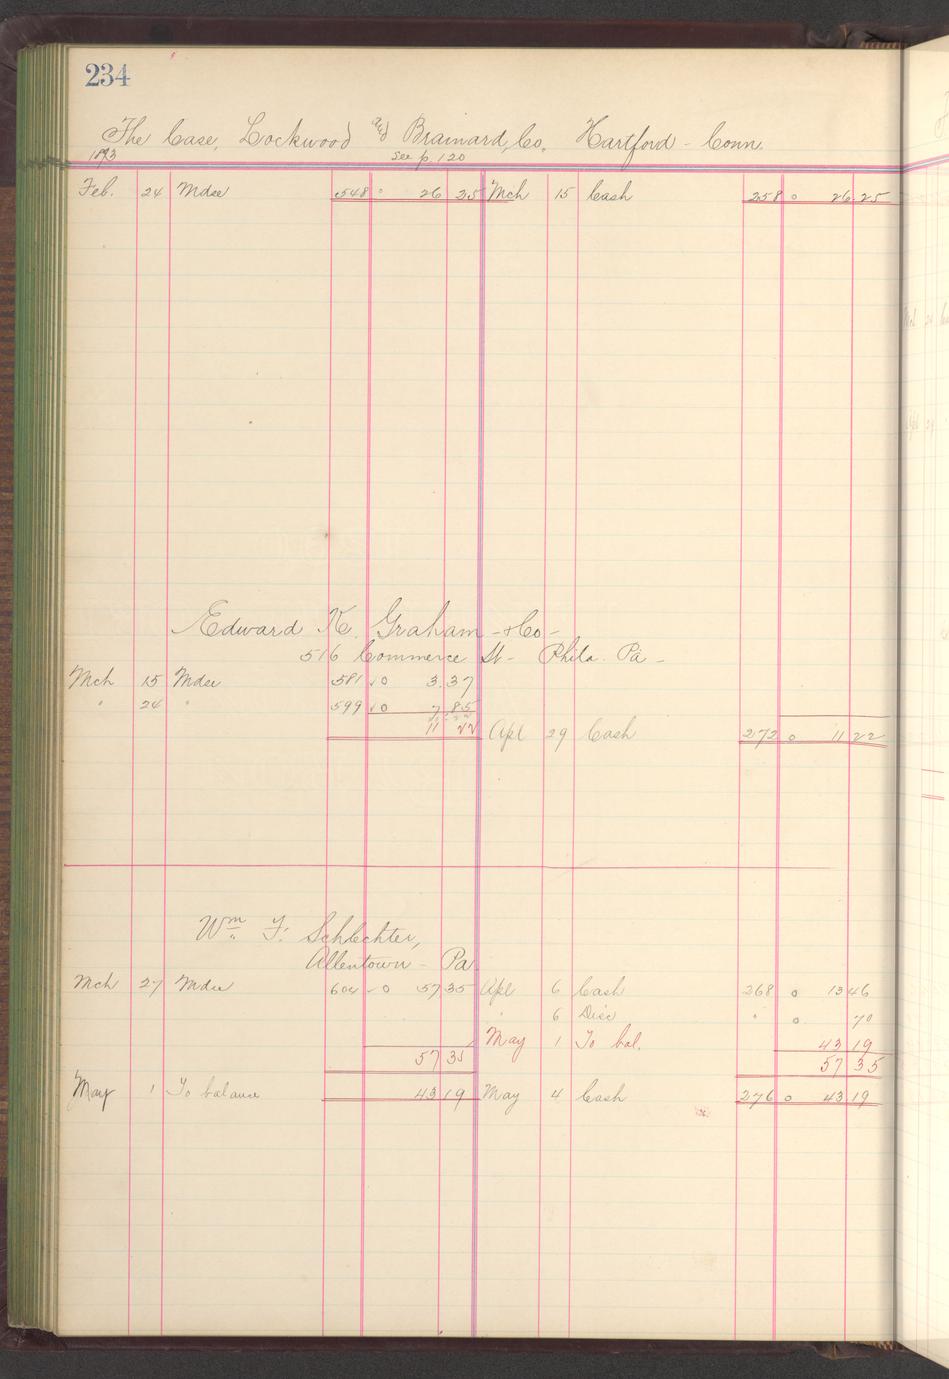 234
The Case, Lockwood and Brainard, Co. Hartford - Conn.
1893 see p. 120
Feb. 24 Mdse 548 0 26 25 Mch 15 Cash 258 0 26.25
Edward K. Graham - & Co -
516 Commerce St - Phila. Pa -
Mch 15 Mdse 581 0 3.37
" 24 " 599 0 7 85
11 22 Apl 29 Cash 272 0 11 22
Wm F. Schlechter,
Allentown - Pa.
Mch 27 Mdse 604 0 57 35 Apl 6 Cash 268 0 13 46
" 6 Disc " 0 70
May 1 To bal. 43 19
57 35 57 35
May 1 To balance 43 19 May 4 Cash 276 0 43 19